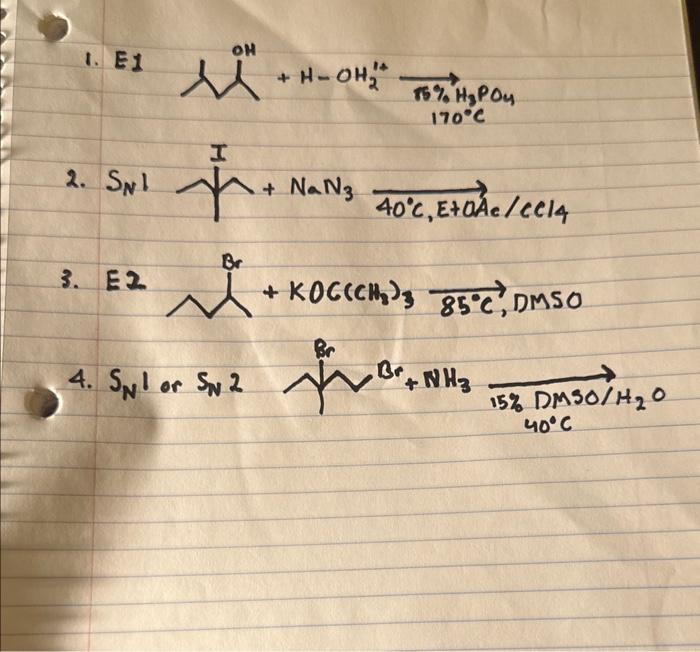 OH
1. E1 + H-OH₂¹⁺
85% H₃PO₄
170°C
I
2. SN1 + NaN₃
40°C, EtOAc/CCl4
Br
3. E2 + KOC(CH₃)₃
85°C, DMSO
Br
4. SN1 or SN2 Br + NH₃
15% DMSO/H₂O
40°C